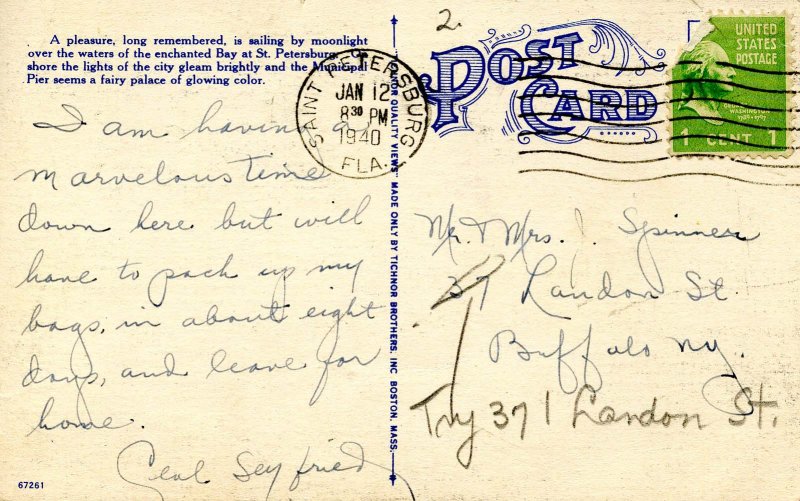 A pleasure, long remembered, is sailing by moonlight
over the waters of the enchanted Bay at St. Petersburg,
shore the lights of the city gleam brightly and the Municipal
Pier seems a fairy palace of glowing color.
I am having a
marvelous time
down here but will
have to pack up my
bags, in about eight
days, and leave for
home.
Seyfried
67261
QUALITY VIEWS" MADE ONLY BY TICHNOR BROTHERS, INC. BOSTON, MASS.
2.
POST
CARD
SAINT PETERSBURG
JAN 12
8 30 PM
1940
FLA.
UNITED
STATES
POSTAGE
GEORGE
WASHINGTON
1 CENT 1
Mr. & Mrs. J. Spinner
37 Landon St.
Buffalo N.Y.
Try 371 Landon St.